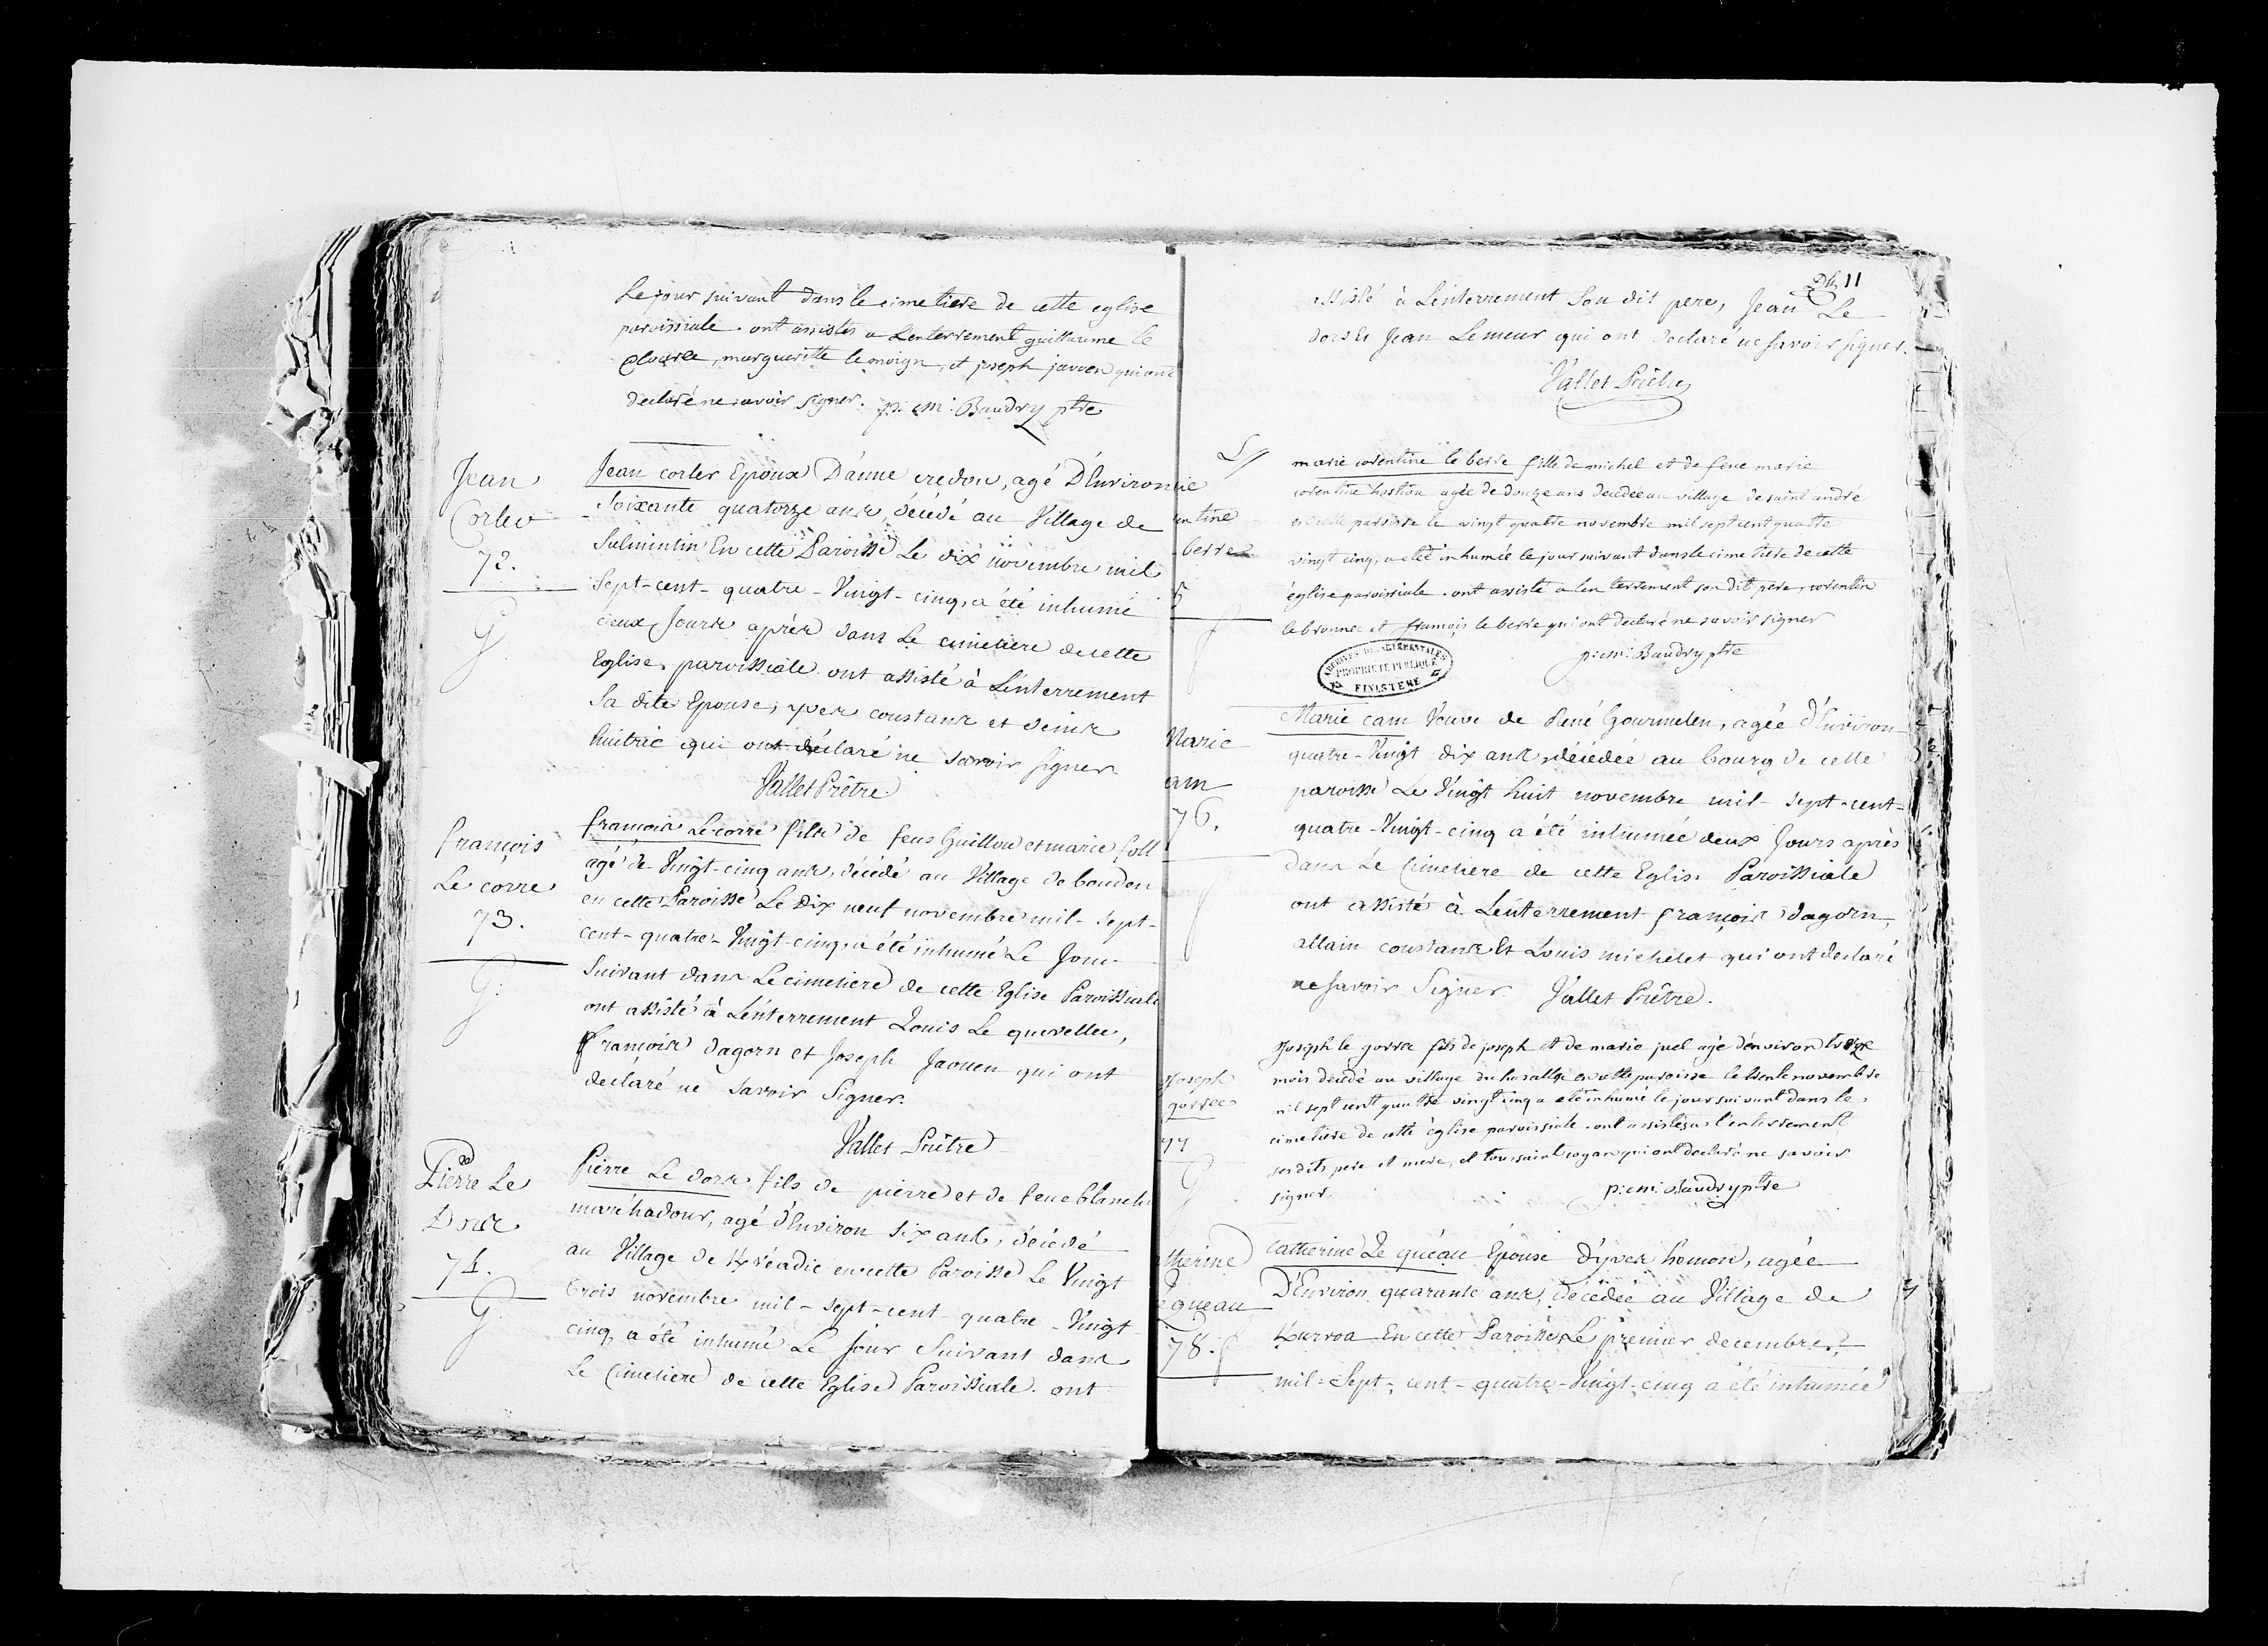 Le jour suivant dans le cimetiere de cette eglise
paroissiale. ont assistés a Lenterrement guillaume le
marguerite le moign, et joseph jaouen qui ont
declaré ne savoir signer. p: m: Baudry ptre
Jean
Corler
72.
Jean corler Epoux D'anne credou, agé D'Environ
Soixante quatorze ans, décédé au Village de
En cette Paroisse Le dix novembre mil
Sept-cent-quatre-Vingt-cinq, a été inhumé
deux Jours après dans Le cimetiere de cette
Eglise paroissiale. ont assisté à L'enterrement
Sa dite Epouse, yves coustans et denis
huitric qui ont déclaré ne savoir signer
Vallet Prêtre
françois
Le corre
73.
françois Le corre fils de feus Guillou et marie foll
agé de Vingt-cinq ans, décédé au Village de boudou
en cette Paroisse Le Dix neuf novembre mil-sept-
cent-quatre-Vingt-cinq, a été inhumé Le Jour
Suivant dans Le cimetiere de cette Eglise Paroissiale
ont assisté à L'enterrement Louis Le quevellec,
françois dagorn et Joseph Jaouen qui ont
declaré ne savoir Signer.
Vallet Prêtre
Pierre Le
Dors
74.
Pierre Le dors fils de pierre et de feue blanche
marchadour, agé d'Environ Six ans, décédé
au Village de en cette Paroisse Le Vingt
trois novembre mil-sept-cent-quatre-Vingt
cinq, a été inhumé Le Jour Suivant dans
Le Cimetiere de cette Eglise Paroissiale. ont
11
assisté à L'enterrement Son dit pere, Jean Le
dors Et Jean Lemeur qui ont declaré ne savoir signer.
Vallet Prêtre
rie
entine
berre
5
marie corentine le berre fille de michel et de feue marie
corentine hostiou agée de douze ans decédée au village de saint andré
en cette paroisse le vingt quatre novembre mil sept cent quatre
vingt cinq, a été inhumée le jour suivant dans le cimetiere de cette
église paroissiale. ont assisté a lenterrement son dit pere, corentin
le bronnec et françois le berre qui ont declaré ne savoir signer
p: m: Baudry ptre
ARCHIVES DEPARTEMENTALES
PROPRIETE PUBLIQUE
FINISTERE
Marie
am
76.
Marie cam Veuve de René Gourmelen, agée d'Environ
quatre-Vingt dix ans, décédée au bourg de cette
paroisse Le Vingt huit novembre mil-sept-cent-
quatre-Vingt-cinq a été inhumée deux Jours après
dans Le Cimetiere de cette Eglise Paroissiale
ont assisté à L'enterrement françois dagorn,
allain coustans Et Louis michelet qui ont declaré
ne savoir Signer. Vallet Prêtre.
Joseph
gorrec
77
Joseph le gorrec fils de joseph et de marie juel agé d'environ treize
mois décedé au village du en cette paroisse le trente novembre
mil sept cent quatre vingt cinq a été inhumé le jour suivant dans le
cimetiere de cette église paroissiale. ont assistés a l'enterrement
ses dits pere et mere, et toussaint cogan qui ont declaré ne savoir
signer. p: m: Baudry ptre
atherine
Le queau
78.
Catherine Le quéau Epouse d'yves homon, agée
D'Environ quarante ans, décédée au Village de
En cette Paroisse Le premier decembre
mil-Sept-cent-quatre-Vingt-cinq a été inhumée